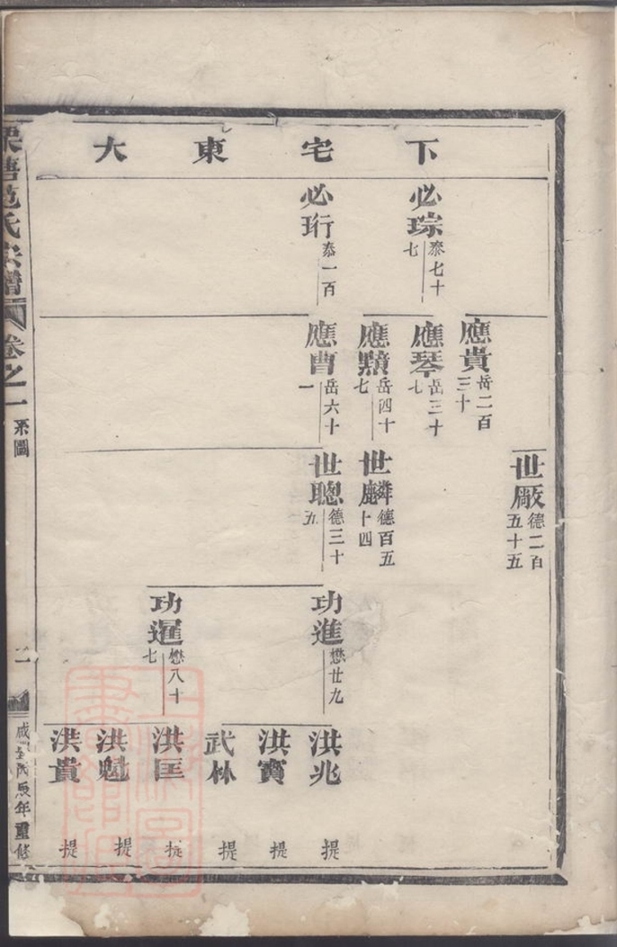 下宅東大
必琮 泰七十七
必珩 泰一百
應貴 岳二百三十
應琴 岳三十七
應 岳四十七
應曹 岳六十一
世 德二百五十五
世麟 德百五十四
世聰 德三十五
功進 懋廿九
功暹 懋八十七
洪兆 提
洪寳 提
武林 提
洪匡 提
洪魁 提
洪貴 提
塘范氏宗譜 卷之一 系圖
二
年重修